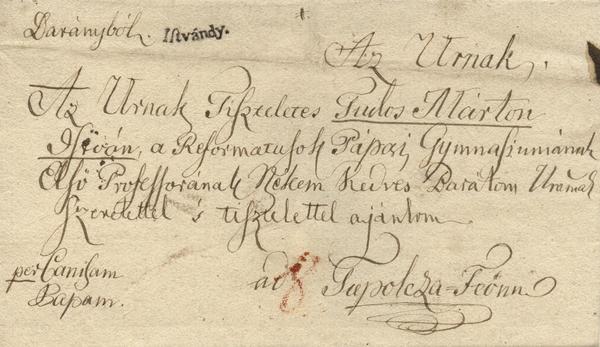 Darányból. Istvándy.
Az Urnak,
Az Urnak Tiszteletes Tudos Márton
István, a Reformatusok Pápai Gymnasiumának
Első Professorának Nékem Kedves Barátom Uramak
Szeretettel 's tisztelettel ajánlom
per Canisam
Papam.
ád 8 Tapolcza=Főnn